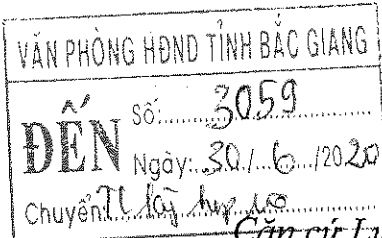 VĂN PHÒNG HĐND TỈNH BẮC GIANG
ĐẾN
Số: 3059
Ngày: 30/6/2020
Chuyển: Tl kỳ họp
Căn cứ